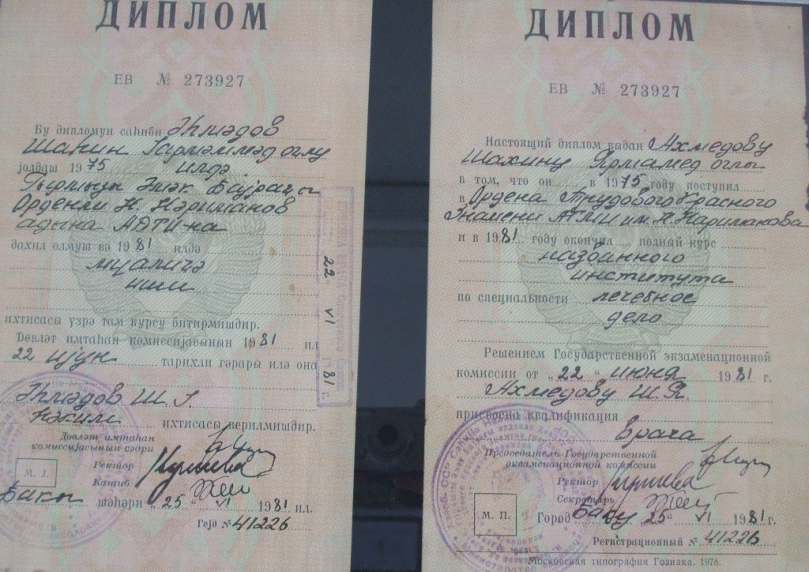 ДИПЛОМ
ЕВ № 273927
Бу дипломун саһиби Әһмәдов
Шаһин Јармәммәд оғлу
јолдаш 1975 илдә
Гырмызы Әмәк Бајрағы
Орденли Н. Нәриманов
адына АДТИ на
дахил олмуш вә 1981 илдә
мүаличә
иши
ихтисасы үзрә там курсу битирмишдир.
Дөвләт имтаһан комиссијасынын 1981 ил
22 ијун тарихли гәрары илә она
Әһмәдов Ш. Ј.
һәким ихтисасы верилмишдир.
Дөвләт имтаһан
комиссијасынын сәдри
Ректор
Катиб
М. Ј.
Бакы шәһәри „25“ VI 1981 ил.
Гејд № 41226
22 VI 81 г.
ДИПЛОМ
ЕВ № 273927
Настоящий диплом выдан Ахмедову
Шахину Ярмамед оглы
в том, что он в 1975 году поступил
в Ордена Трудового Красного
Знамени АГМИ им. Н. Нариманова
и в 1981 году окончил полный курс
названного
института
по специальности лечебное
дело
Решением Государственной экзаменационной
комиссии от „22“ июня 1981 г.
Ахмедову Ш. Я.
присвоена квалификация
Врача
Председатель Государственной
экзаменационной комиссии
Ректор
Секретарь
М. П.
Город Баку „25“ VI 1981 г.
Регистрационный № 41226
Московская типография Гознака. 1978.